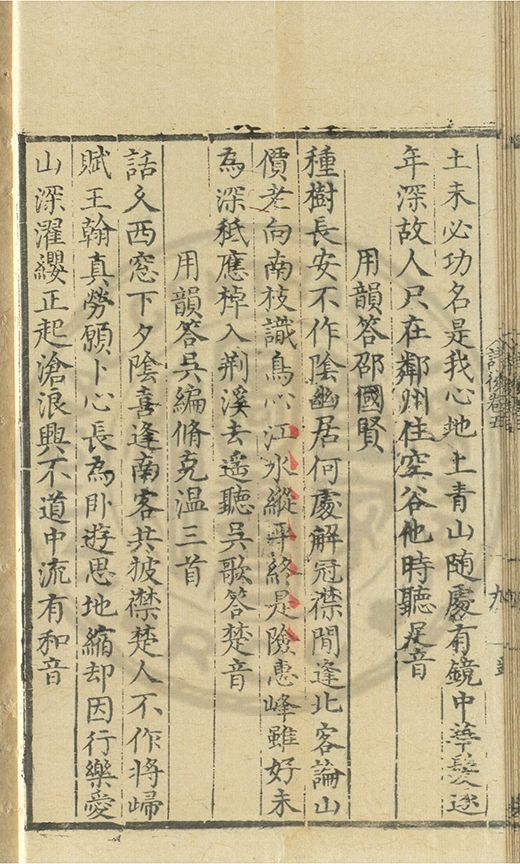 土未必功名是我心地上青山随處有鏡中華髮逐
年深故人只在鄰州住空谷他時聽足音
用韻答邵國賢
種樹長安不作陰幽居何處解冠襟閒逢北客論山
價老向南枝識鳥心江水縱平終是險惠峰雖好未
為深秪應棹入荆溪去遥聽吳歌答楚音
用韻答吳編脩克温三首
話久西窓下夕陰喜逢南客共披襟楚人不作將歸
賦王翰真勞願卜心長為卧遊思地縮却因行樂愛
山深濯纓正起滄浪興不道中流有和音